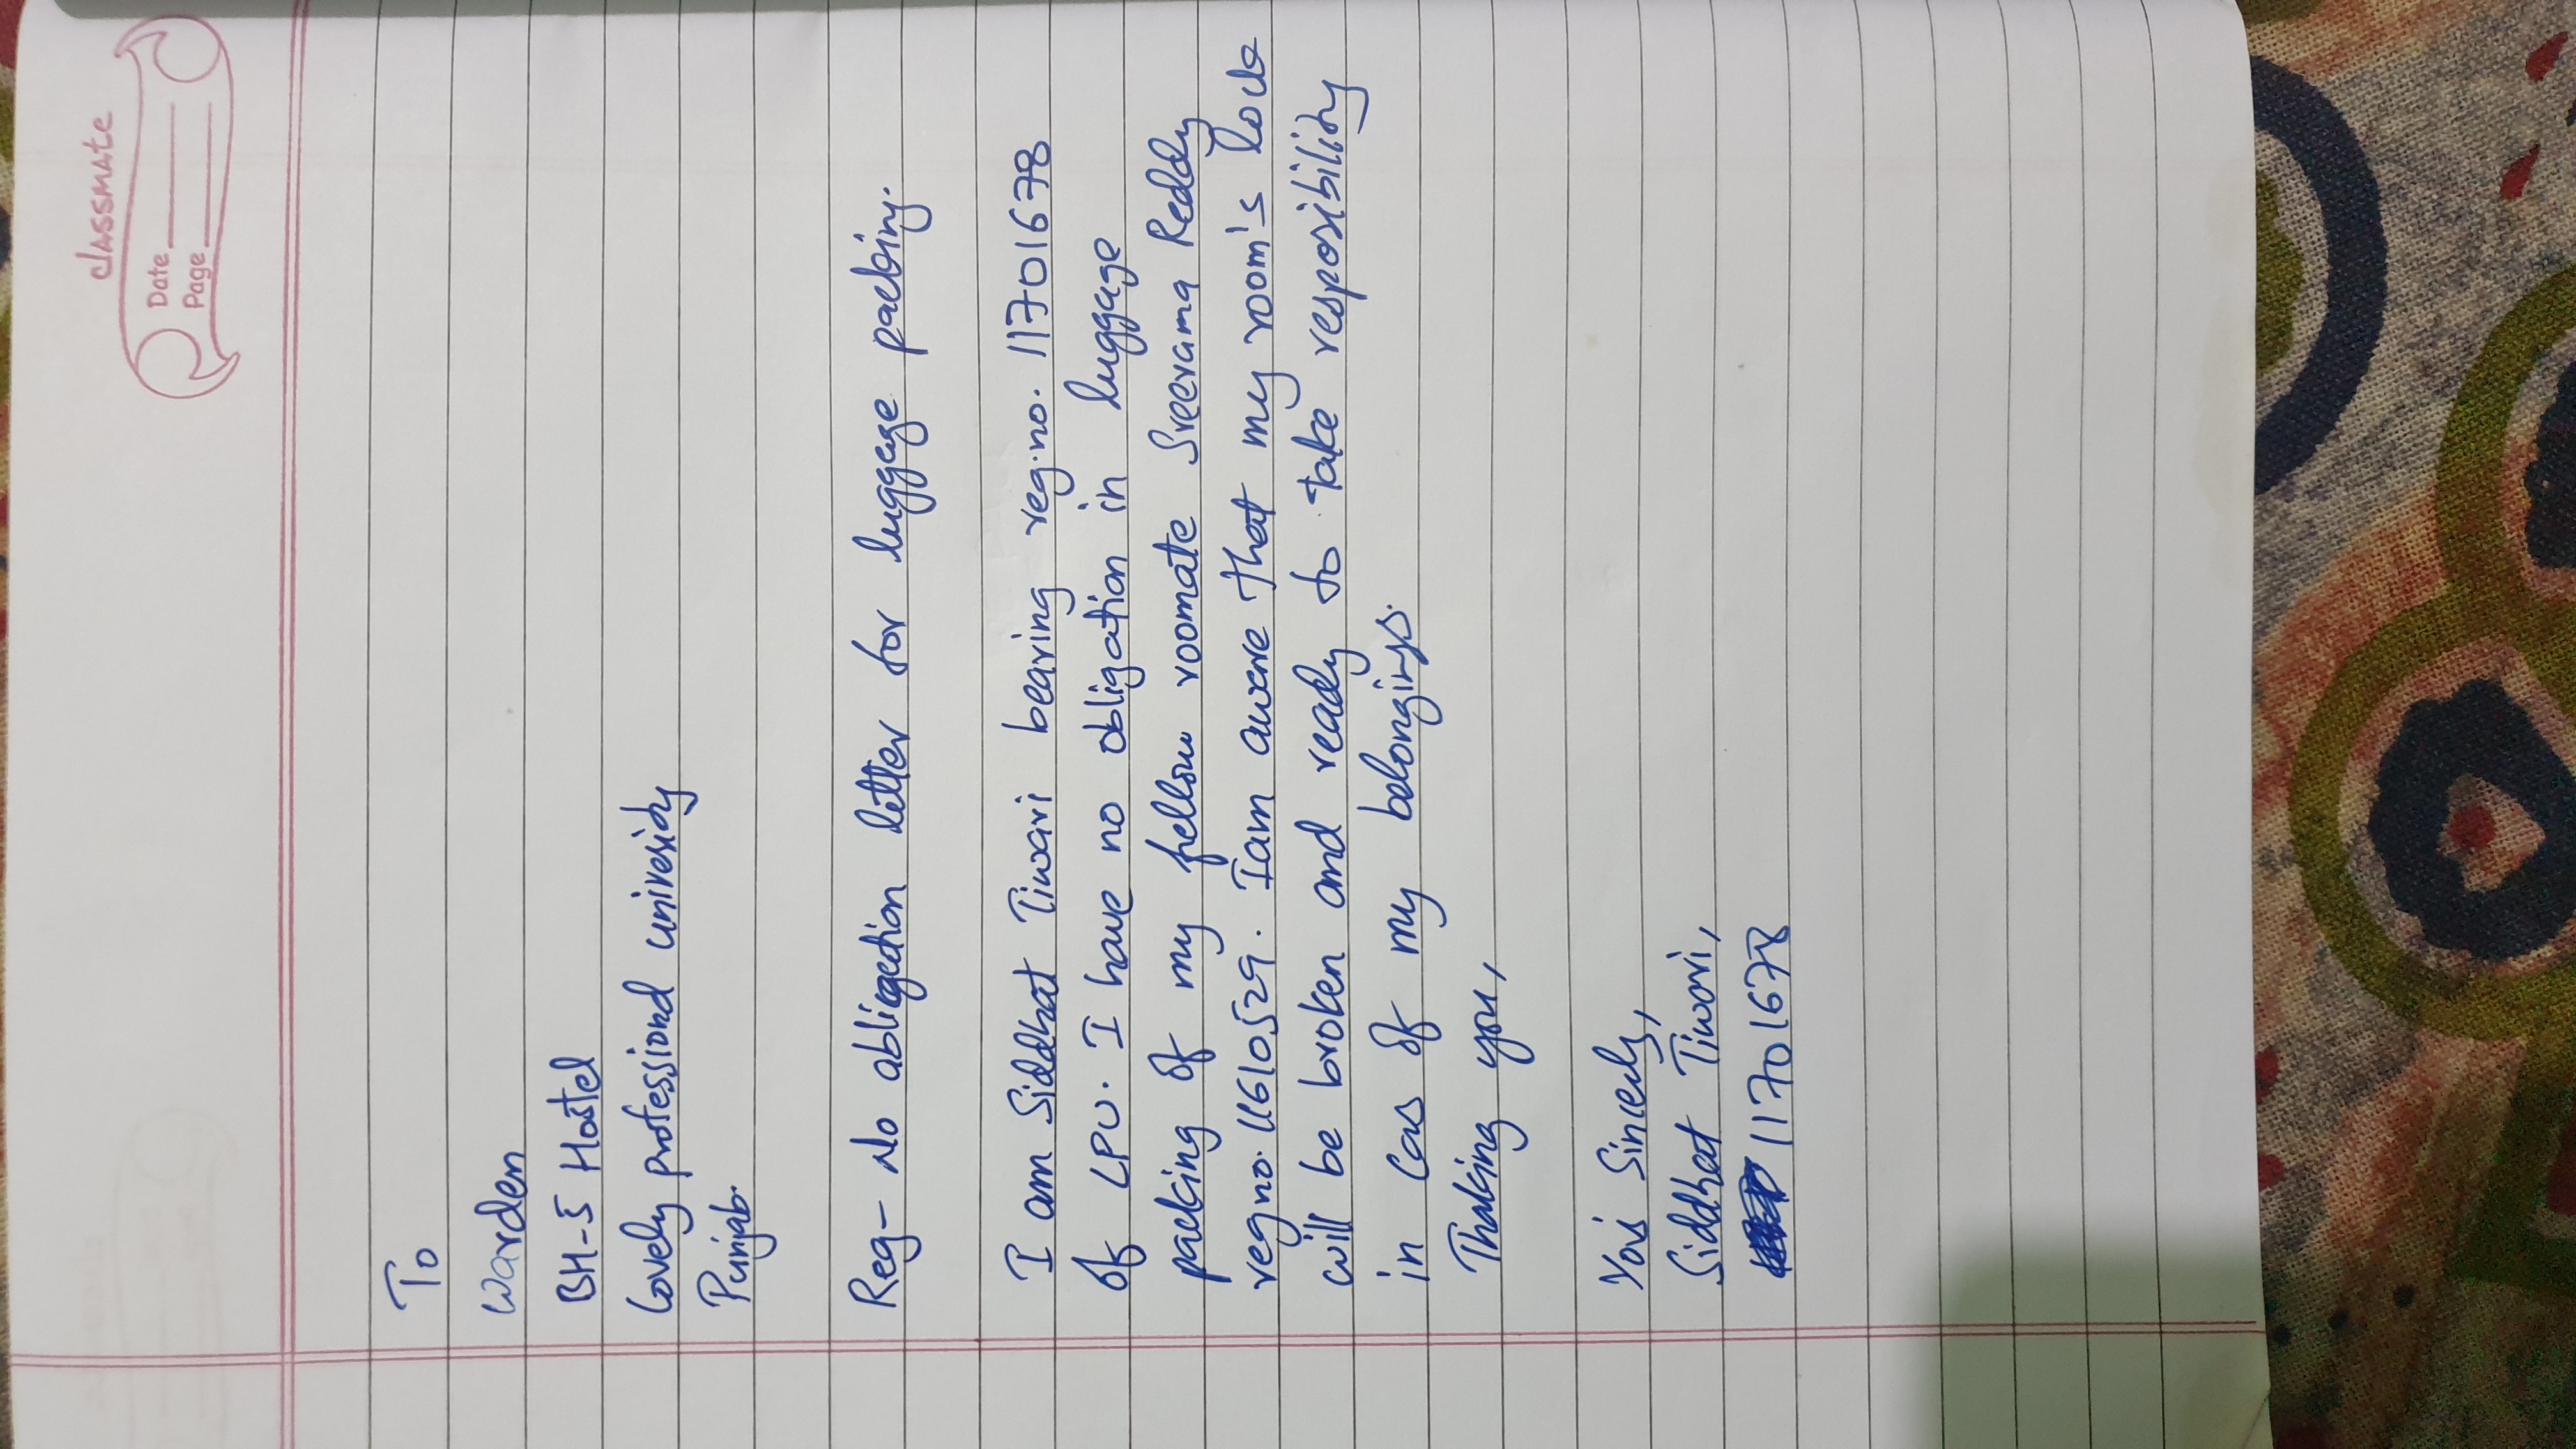 classmate
Date
Page
To
Warden
BH-5 Hostel
Lovely professional univesidy
Punjab.
Reg- No abligedion letter for luggage packing.
I am Siddhat Tiwari bearing reg.no. 11701678
of LPU. I have no obligation in luggage
packing of my fellow roomate Sreerama Reddy
reg no. 11610529. I am aware that my room's lock
will be broken and ready to take resposibility
in cas of my belongings.
Thaking you,
Yo's Sincerly,
Siddhat Tiwari,
11701678